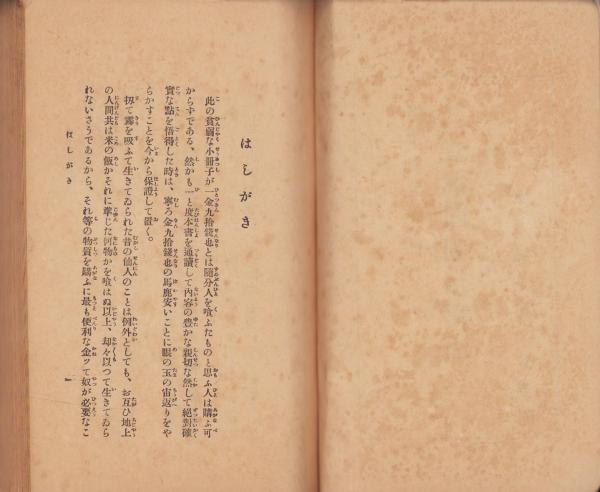 はしがき
此の貧弱な小冊子が一金九拾錢也とは隨分人を喰ふたものと思ふ人は購ふ可
からずである、然かも一と度本書を通讀して內容の豊かな親切な然して絕對確
實な點を悟得した時は、寧ろ金九拾錢也の馬鹿安いことに眼の玉の宙返りをや
らかすことを今から保證して置く。
扨て霧を吸ふて生きてゐられた昔の仙人のことは例外としても、お互ひ地上
の人間共は米の飯かそれに準じた何物かを喰はぬ以上、却を以つて生きてゐら
れないさうであるから、それ等の物質を購ふに最も便利な金ッて奴が必要なこ
はしがき
一